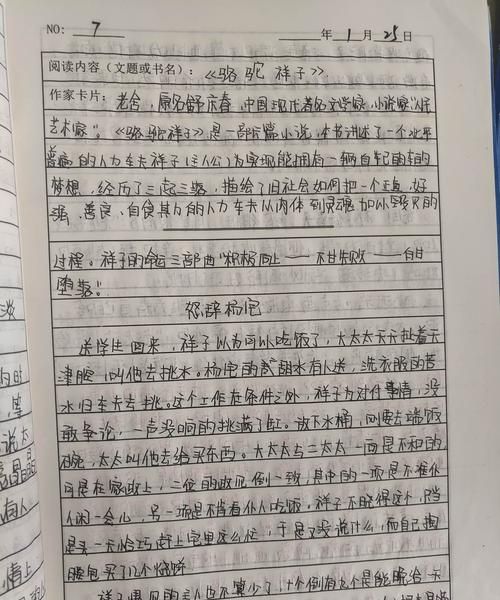 NO: 7 年 1 月 25 日
阅读内容（文题或书名）：《骆驼祥子》.
作家卡片：老舍，原名舒庆春，中国现代著名文学家，小说家"人民
艺术家"。《骆驼祥子》是一部长篇小说，本书讲述了一个北平
普痛的人力车夫祥子（主人公）为实现能拥有一辆自己的车的
梦想，经历了三起三落，描绘了旧社会如何把一个正直、好
强、善良、自食其力的人力车夫从肉体到灵魂加以毁灭的
过程。祥子的命运三部曲"积极向上——不甘失败——自甘
堕落。"
怒辞杨宅
送学生回来，祥子以为可以吃饭了，大太太天天扯着天
津腔，叫他去挑水。杨宅的甜水有人送，洗衣服的苦
水归车夫去挑。这个工作在条件之外，祥子为对付事情，没
敢争论，一声没响的挑满了缸。放下水桶，刚要去端饭
碗，太太叫他去给买东西。大太太与二太太一向是不和的
可是在家政上，二位的政见倒一致，其中的一项是不准仆
人闲一会儿，另一项是不肯看仆人吃饭，祥子不晓得这个，只当
是头一天恰巧赶上宅里这么忙，于是又没说什么，而自己掏
腰包买了几个烧饼
祥子遇见的主人也不算少了，十个倒有九个是能晚给一天
淡
说太
向人
情上